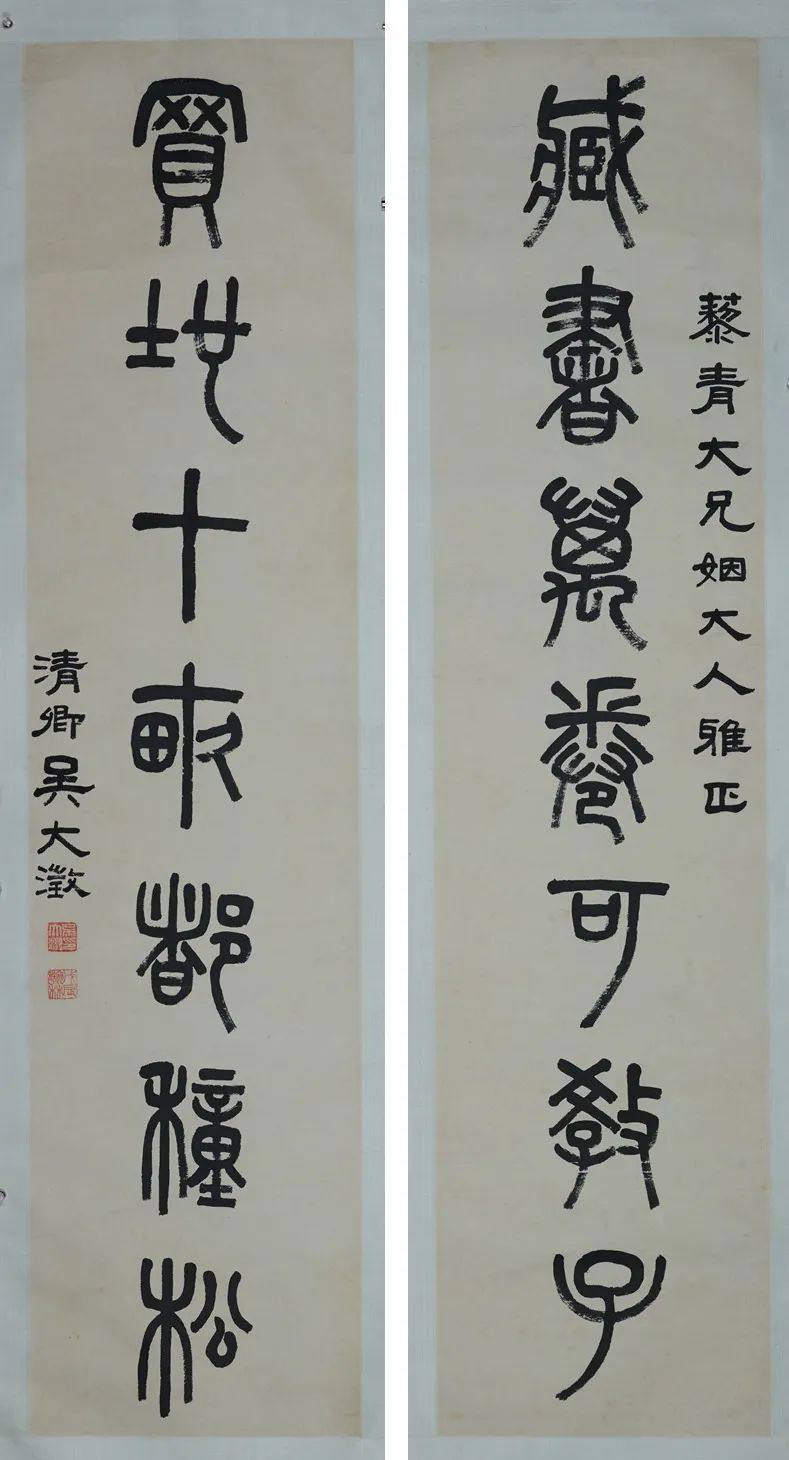 藜青大兄姻大人雅正
臧書萬卷可教子
買地十畝都種松
清卿吴大澂